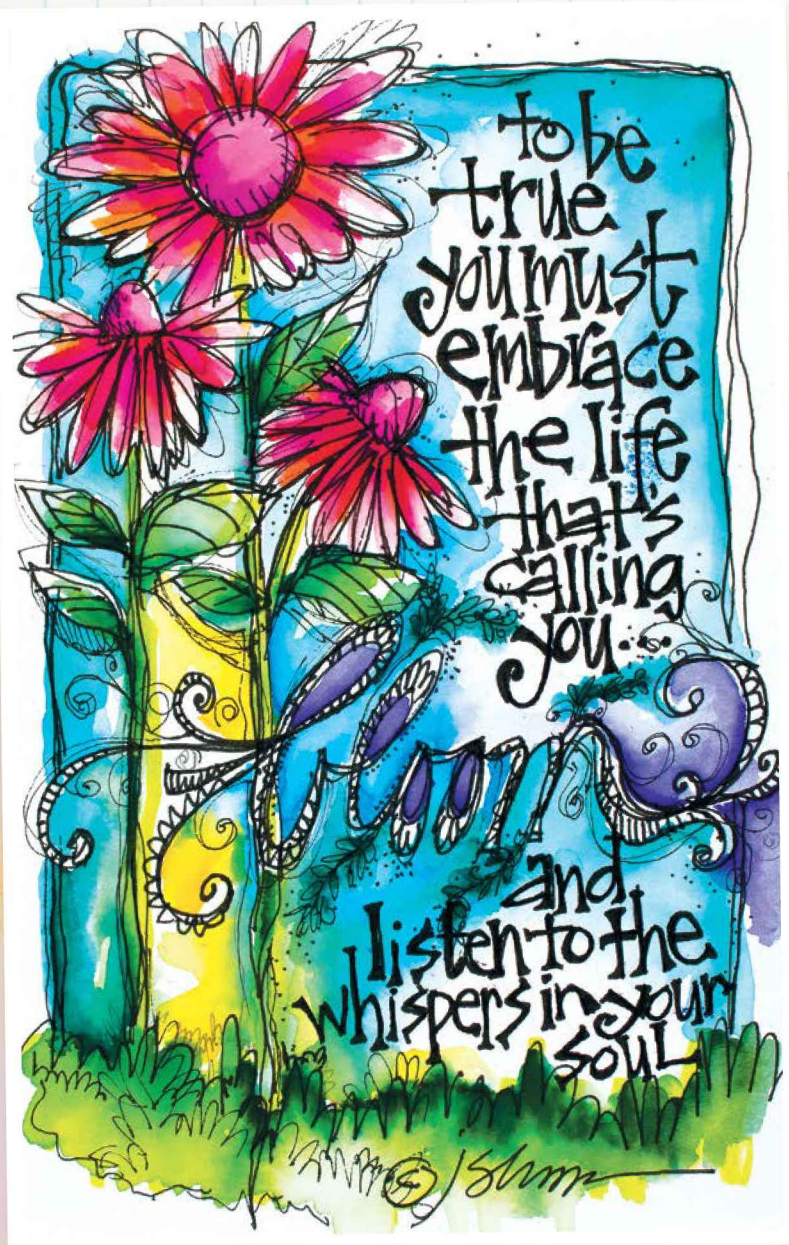 to be
true
you must
embrace
the life
that's
calling
you...
bloom
and
listen to the
whispers in your
soul
©